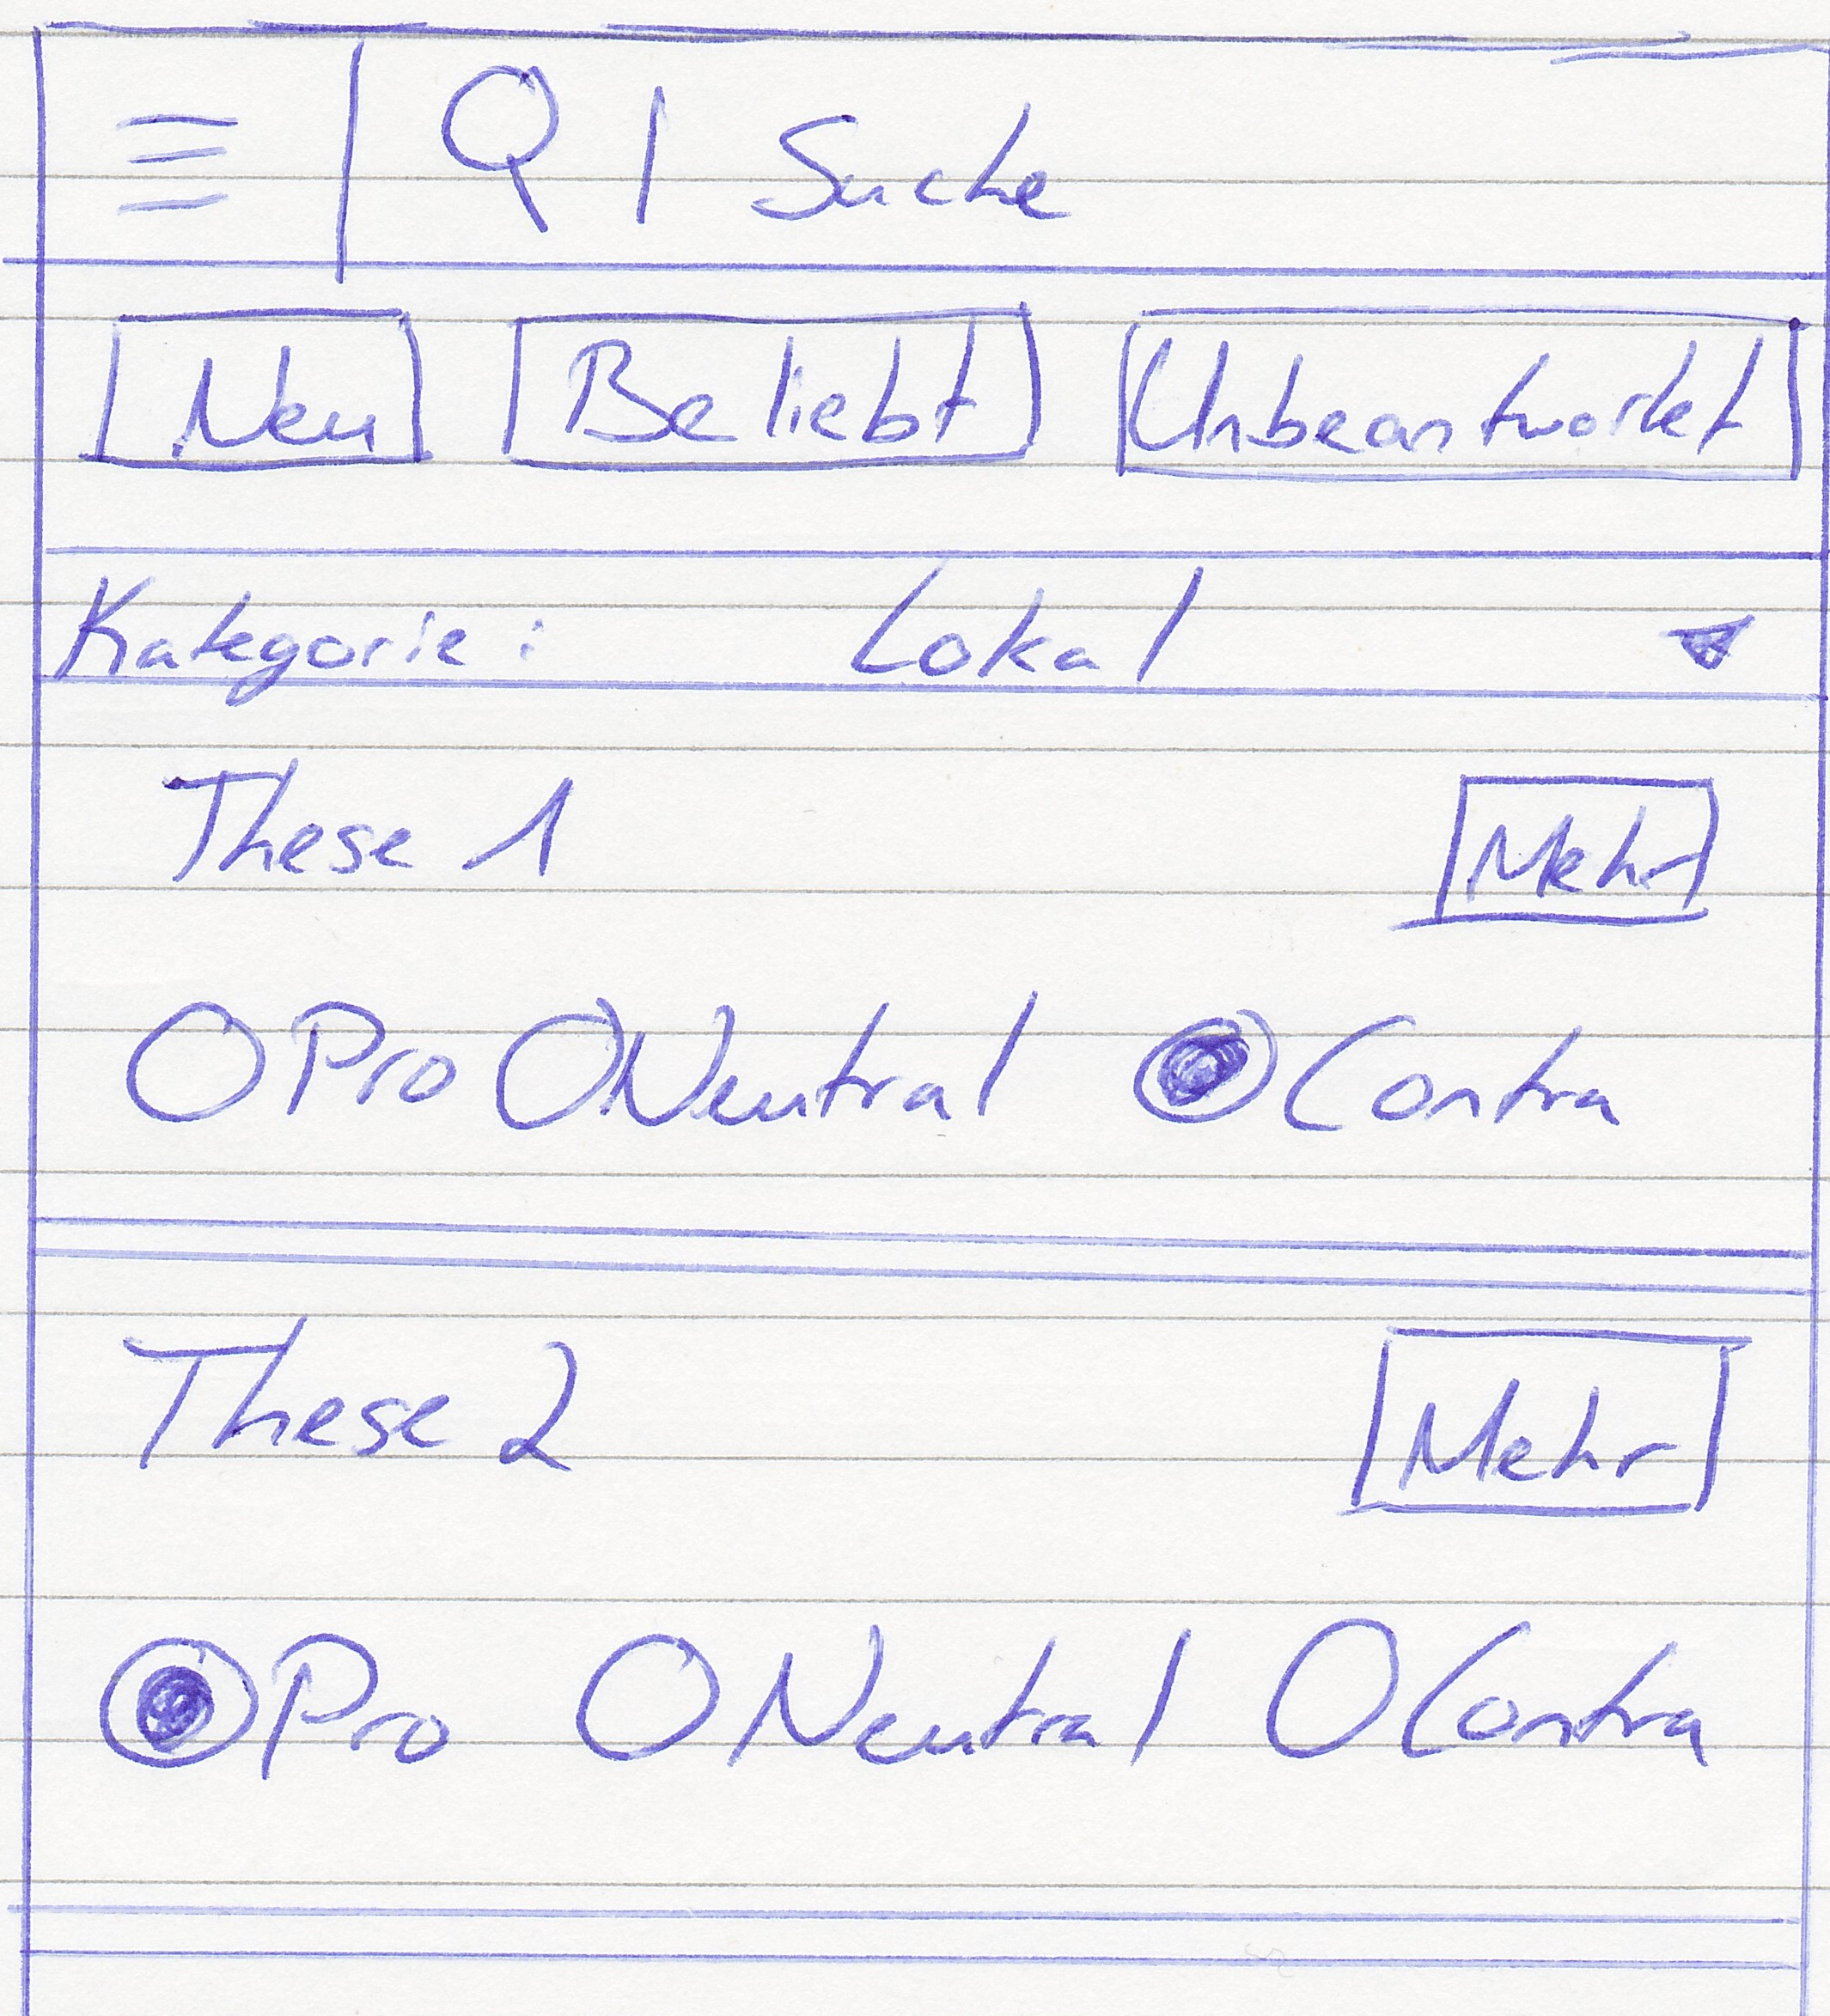 Suche
Neu Beliebt Unbeantwortet
Kategorie: Lokal
These 1 Mehr
Pro Neutral Contra
These 2 Mehr
Pro Neutral Contra